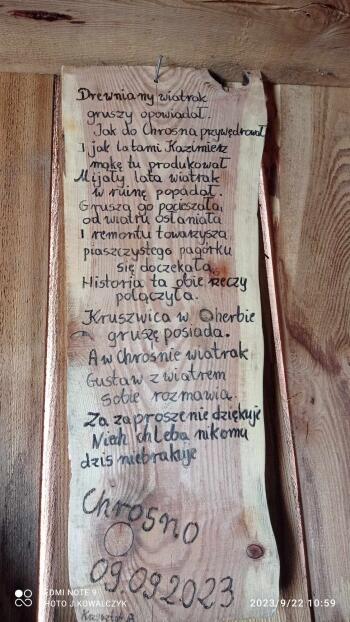 Drewniany wiatrak
gruszy opowiadał.
Jak do Chrosna przywędrował
I jak latami Kazimierz
mąkę tu produkował
Mijały lata wiatrak
w ruinę popadał.
Gruszą go pocieszała,
od wiatru osłaniała
I remontu towarzysza
piaszczystego pagórku
się doczekała,
Historia ta obie rzeczy
połączyła.
Kruszwica w Oherbie
gruszę posiada.
A w Chrośnie wiatrak
Gustaw z wiatrem
sobie rozmawia.
Za zaproszenie dziękuje
Niech chleba nikomu
dziś niebrakuje
Chrosno
09.09.2023
REDMI NOTE 9
PHOTO J.KOWALCZYK
2023/9/22 10:59